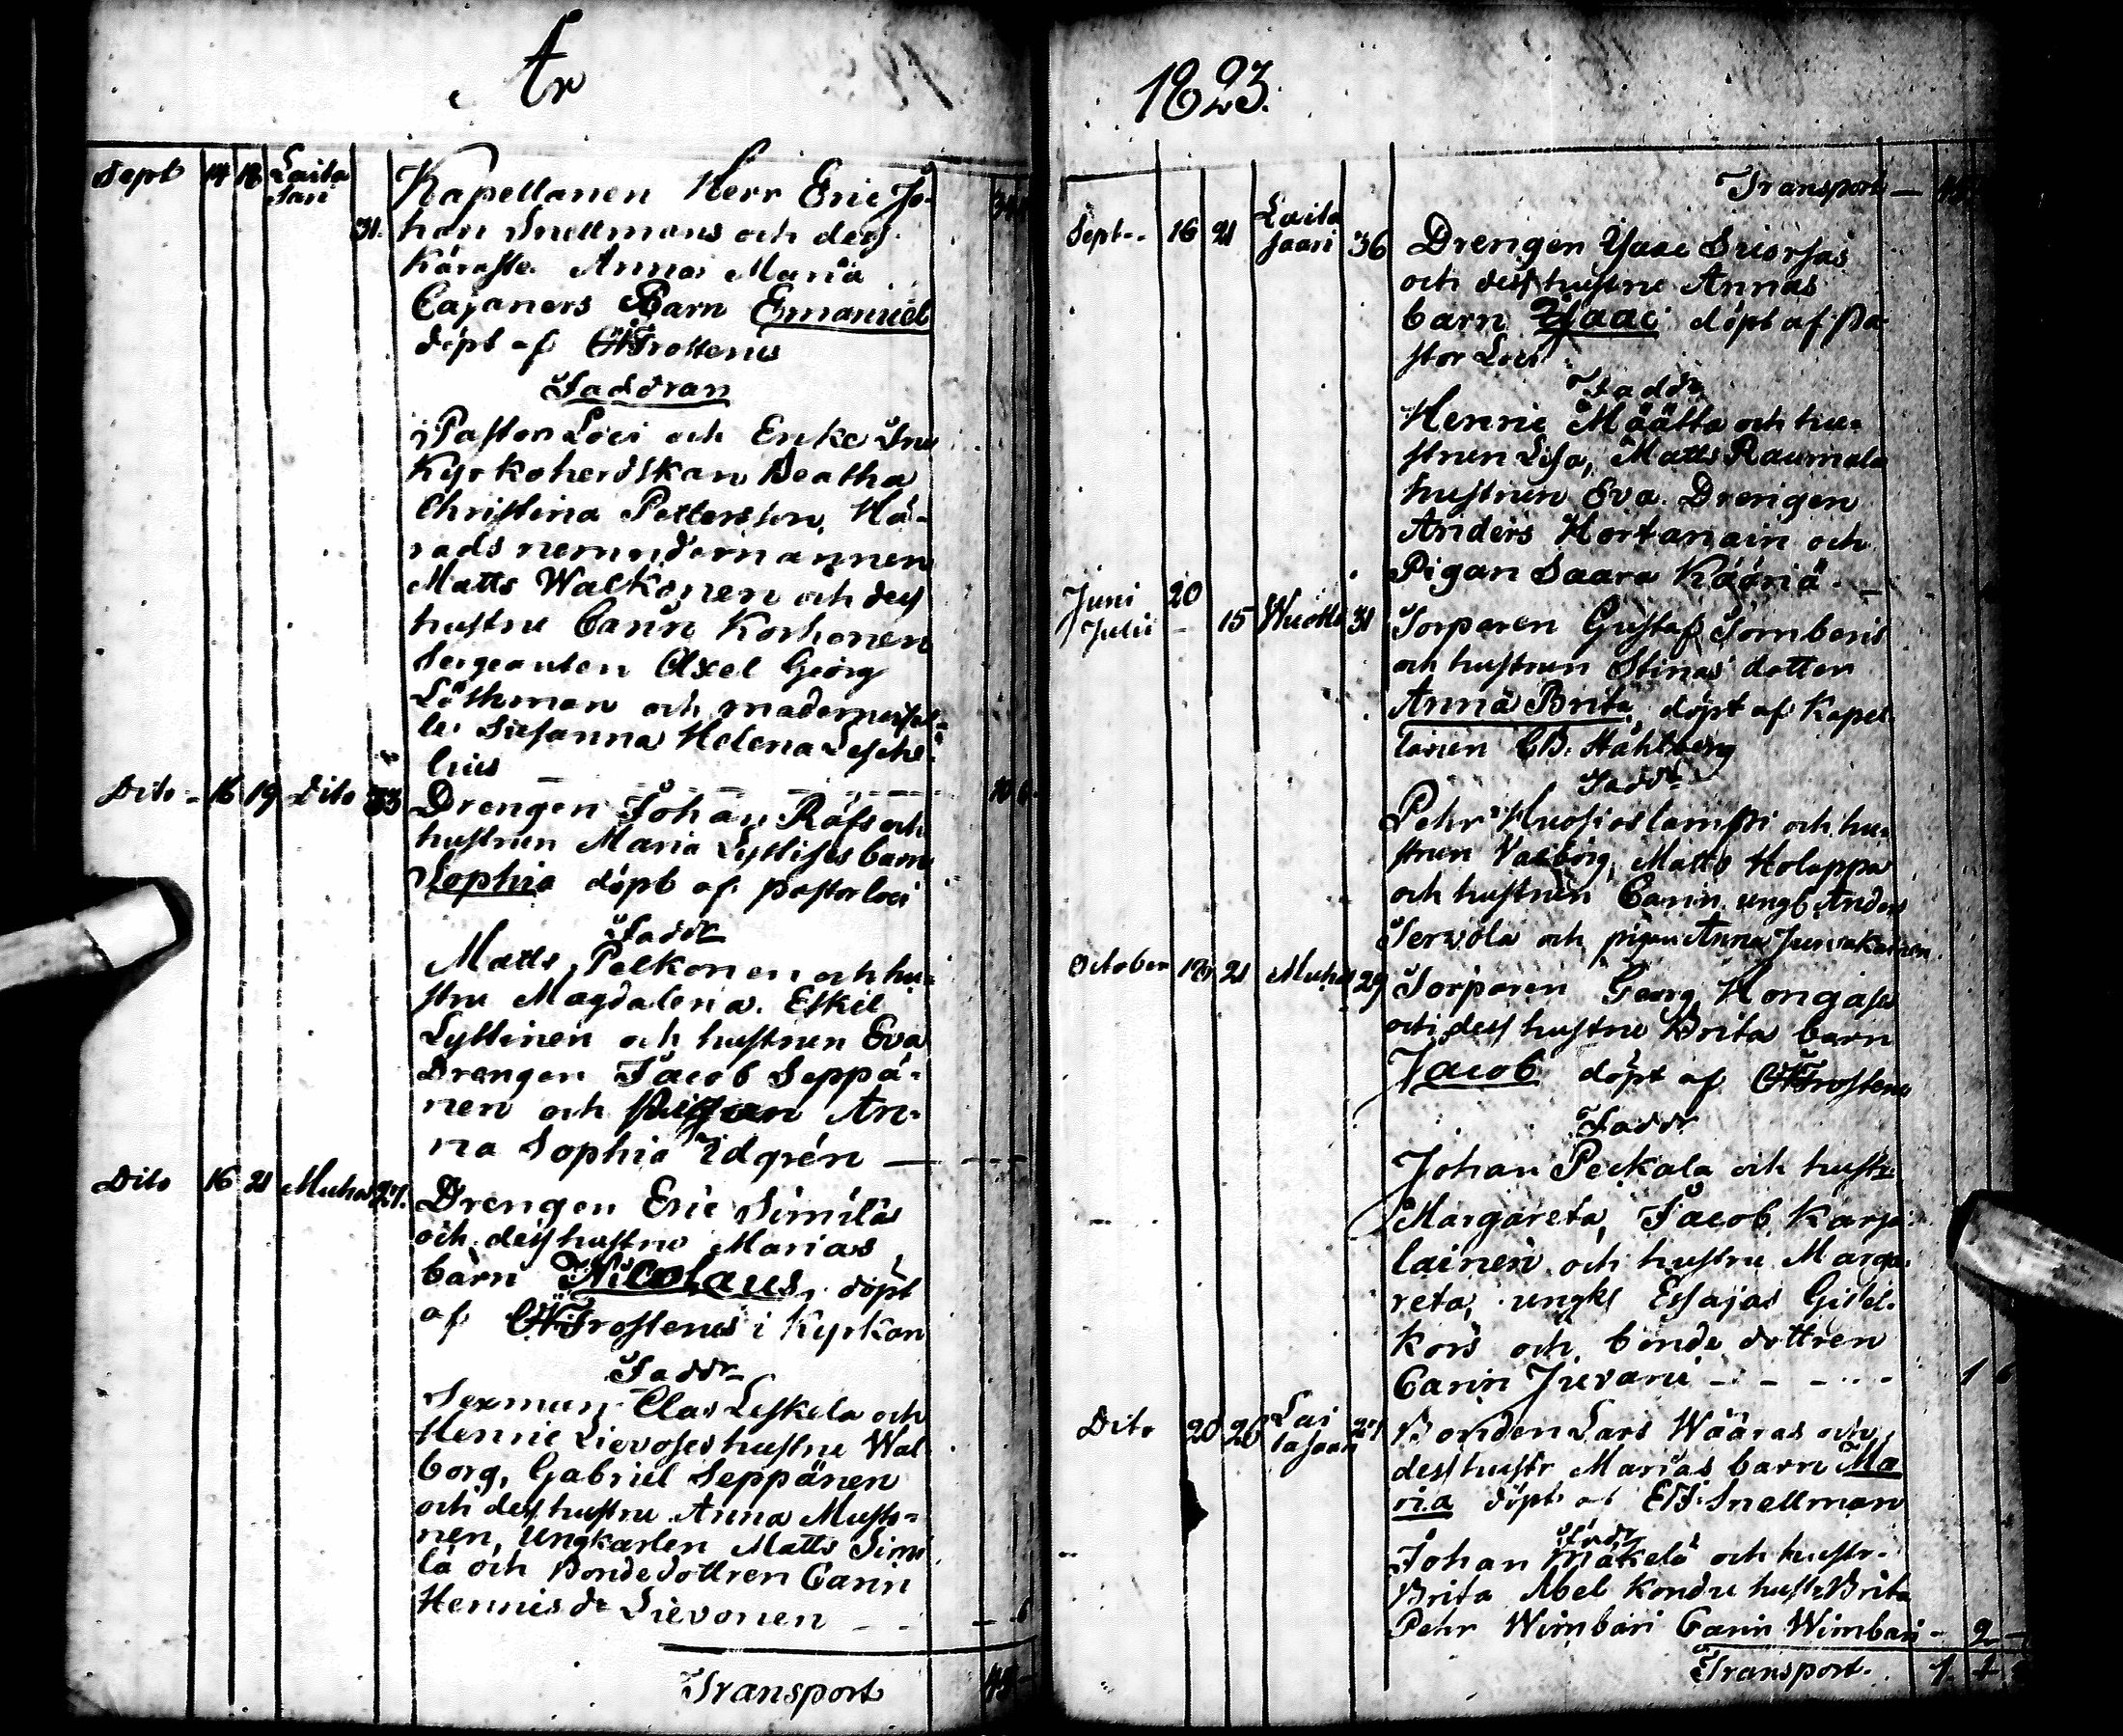 År
Sept 14 18 Laita
sari
Kapellanen Herr Eric Jo-
31. han Snellmans och dess
Käraste Anna Maria
Cajaners Barn Emanuel
döpt af Frosterus
Faddran
Pastor Loci och Enke Fru
Kyrkoherdskan Beatha
Christina Pettersson, Hä-
radsnemndemannen
Matts Walkonen och dess
hustru Carin Korhonen
Sergeanten Axel Georg
Löthman och mademoisel-
le Susanna Helena
lius
Dito 16 19 Dito 33 Drengen Johan Räfs och
hustrun Maria Lyttises barn
Sophia döpt af pastor loci
Faddr
Matts Pelkonen och hu-
stru Magdalena. Eskil
Lyttinen och hustrun Eva
Drengen Jacob Seppä-
nen och Pigan An-
na Sophia Idgrén
Dito 16 21 Muhos 27. Drengen Eric Similäs
och dess hustru Marias
barn Nicolaus, döpt
af Frosterus i Kyrkan
Faddr
Sexmun Clas Leskela och
Henric Lievoses hustru Wal-
borg, Gabriel Seppänen
och dess hustru Anna Musto-
nen, Ungkarlen Matts Simi
lä och Bondedottren Carin
Henricsdr Lievonen
Transport
1823.
Transport
Sept 16 21 Laita
saari 36 Drengen Ysaac
och dess hustru Annas
barn Ysaac döpt af Pa-
stor Loci
Faddr
Henric Määtta och hu-
strun Lisa, Matts Raumala
hustrun Eva. Drengen
Anders Hortanain och
Pigan Saara Kääriä
Juni 20
Julii 15 Wuotti 31 Torparen Gustaf Tornberis
och hustrun Stinas dotter
Anna Brita, döpt af Kapel
lanen CB. Ståhlberg
Faddr
Pehr och hu-
strun Valborg, Matts Holappa
och hustrun Carin. ungk Anders
Servola och pigan Anna Juvakainen.
October 21 Muhos 29 Torparen Georg Hongases
och dess hustru Brita barn
Jacob döpt af Frosterus
Faddr
Johan Peckala och hustr
Margareta, Jacob Karja
lainen och hustru Marga-
reta, ungk Essajas Gissel-
kors och bonde dottren
Carin Juvani 1 6
Dito 20 26 Lai
tasaari 27 Bonden Lars Wääräs och
dess hustr Marias barn Ma
ria döpt af EJ. Snellman
Faddr
Johan Mäkelä och hustr.
Brita Abel Kondru hustr Brita
Pehr Wimbari Carin Wimbari - 2
Transport.